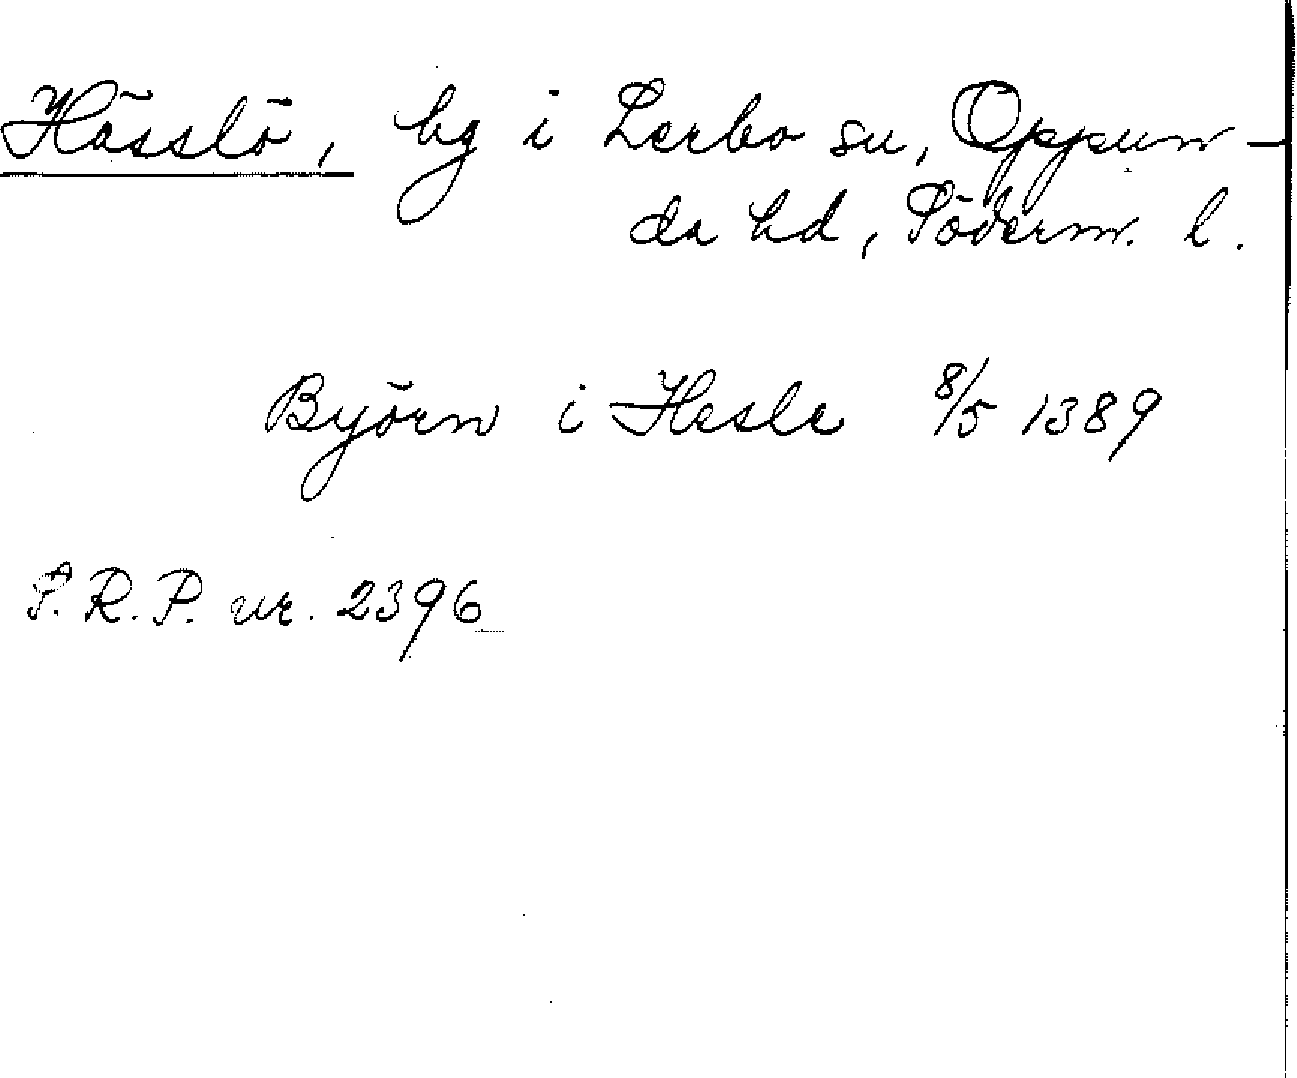 Hässlö, by i Lerbo sn, Oppun-
da hd, Söderm. l.
Byörn i Hesle 8/5 1389
S.R.P. nr. 2396